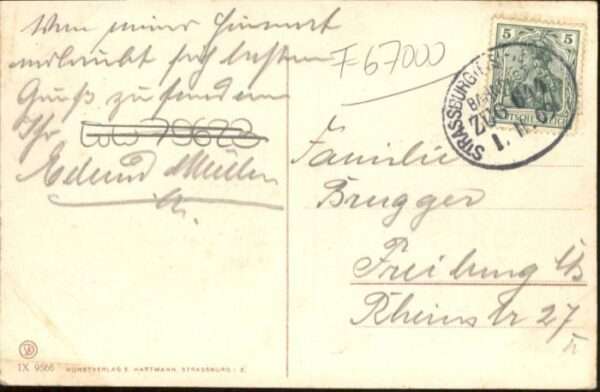 Von meiner Hinfahrt
erlaubt sich besten
Gruß zu senden
Ihr
Edmund Müller
F67000
5 5
DEUTSCHES REICH
STRASSBURG
BAHNPOST
ZUG
1. 11. 07
Familie
Brugger
Freiburg i/B
Rheinstr 27
II
IX 9566 KUNSTVERLAG E. HARTMANN, STRASSBURG I. E.